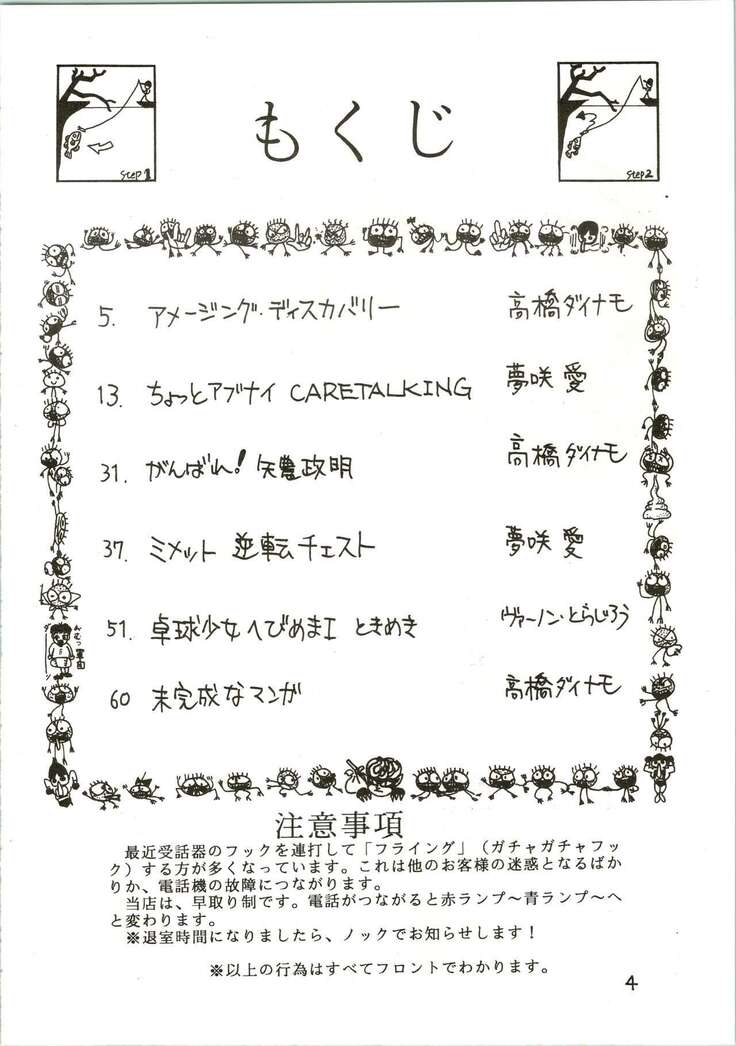 もくじ
step1
step2
5. アメージング・ディスカバリー 高橋ダイナモ
13. ちょっとアブナイ CARETALKING 夢咲 愛
31. がんばれ!矢農政明 高橋ダイナモ
37. ミメット 逆転チェスト 夢咲 愛
51. 卓球少女へびめまI ときめき ヴァーノン・とらじろう
60 未完成なマンガ 高橋ダイナモ
注意事項
最近受話器のフックを連打して「フライング」(ガチャガチャフッ
ク)する方が多くなっています。これは他のお客様の迷惑となるばか
りか、電話機の故障につながります。
当店は、早取り制です。電話がつながると赤ランプ〜青ランプ〜へ
と変わります。
※退室時間になりましたら、ノックでお知らせします!
※以上の行為はすべてフロントでわかります。
4